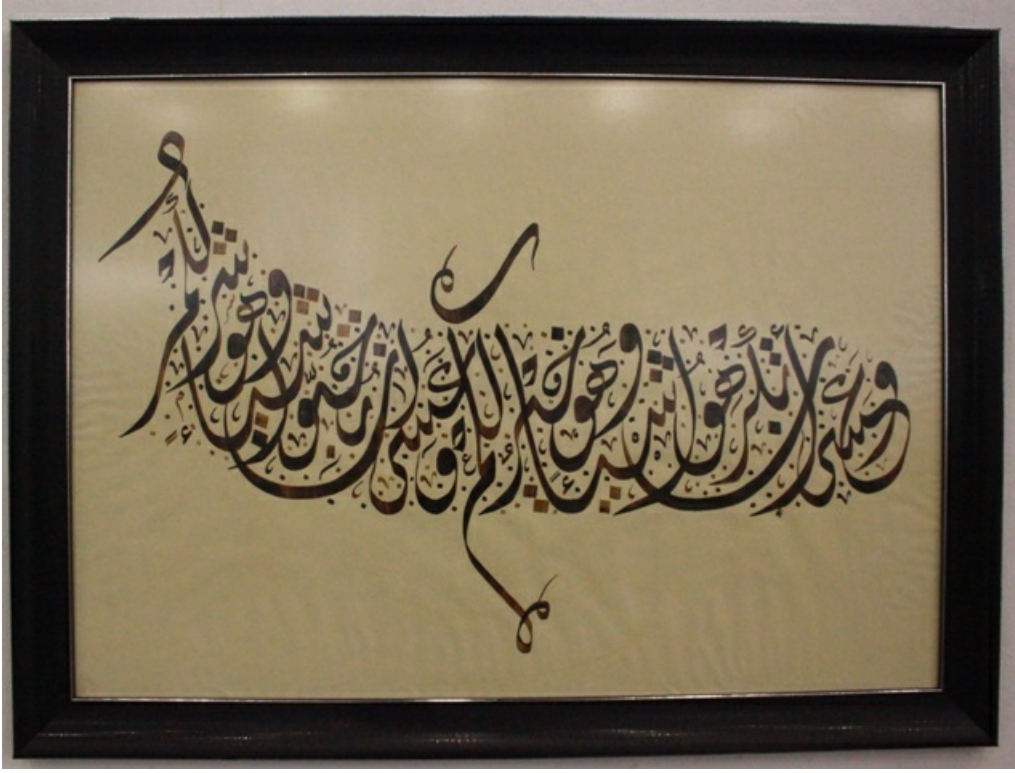 وَعَسَى أَن تَكْرَهُوا شَيْئًا وَهُوَ خَيْرٌ لَكُمْ وَعَسَى أَن تُحِبُّوا شَيْئًا وَهُوَ شَرٌّ لَكُمْ